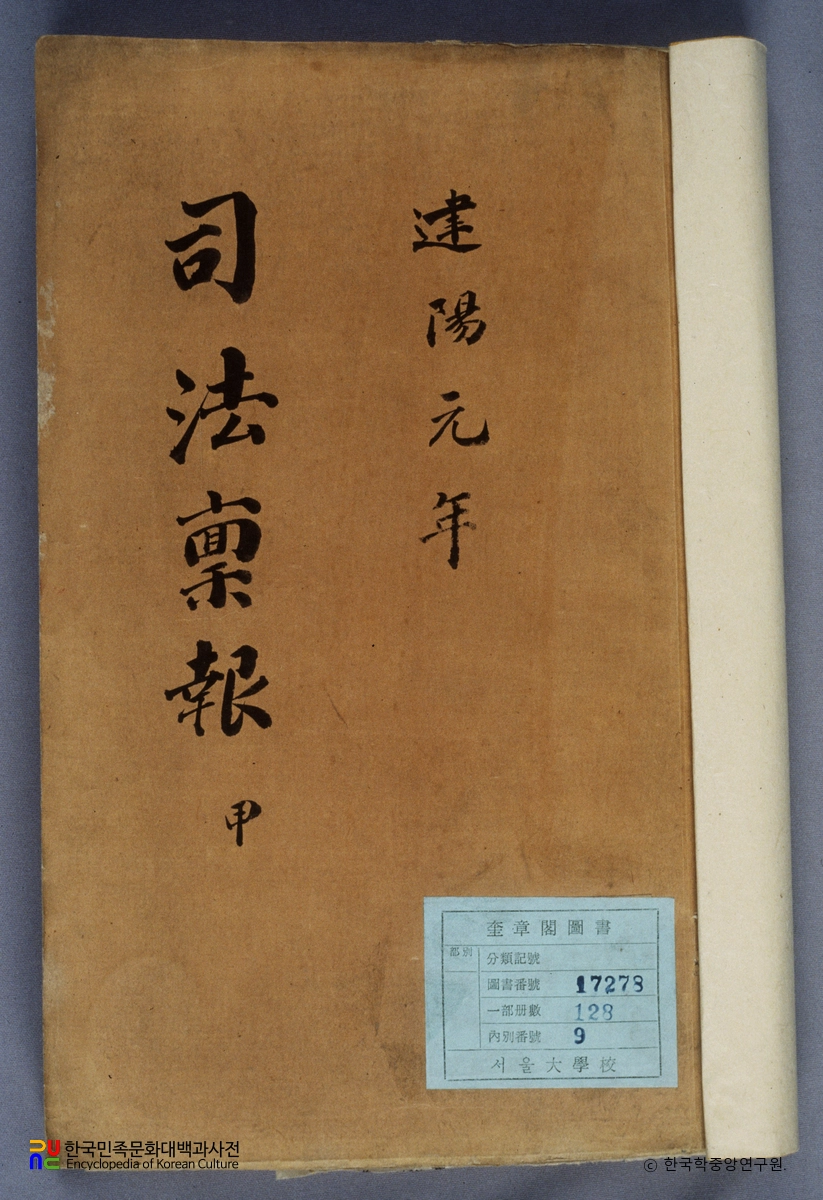 建陽元年
司法稟報
甲
奎章閣圖書
部別
分類記號
圖書番號 17278
一部册數 128
內別番號 9
서울大學校
한국민족문화대백과사전
Encyclopedia of Korean Culture
© 한국학중앙연구원.